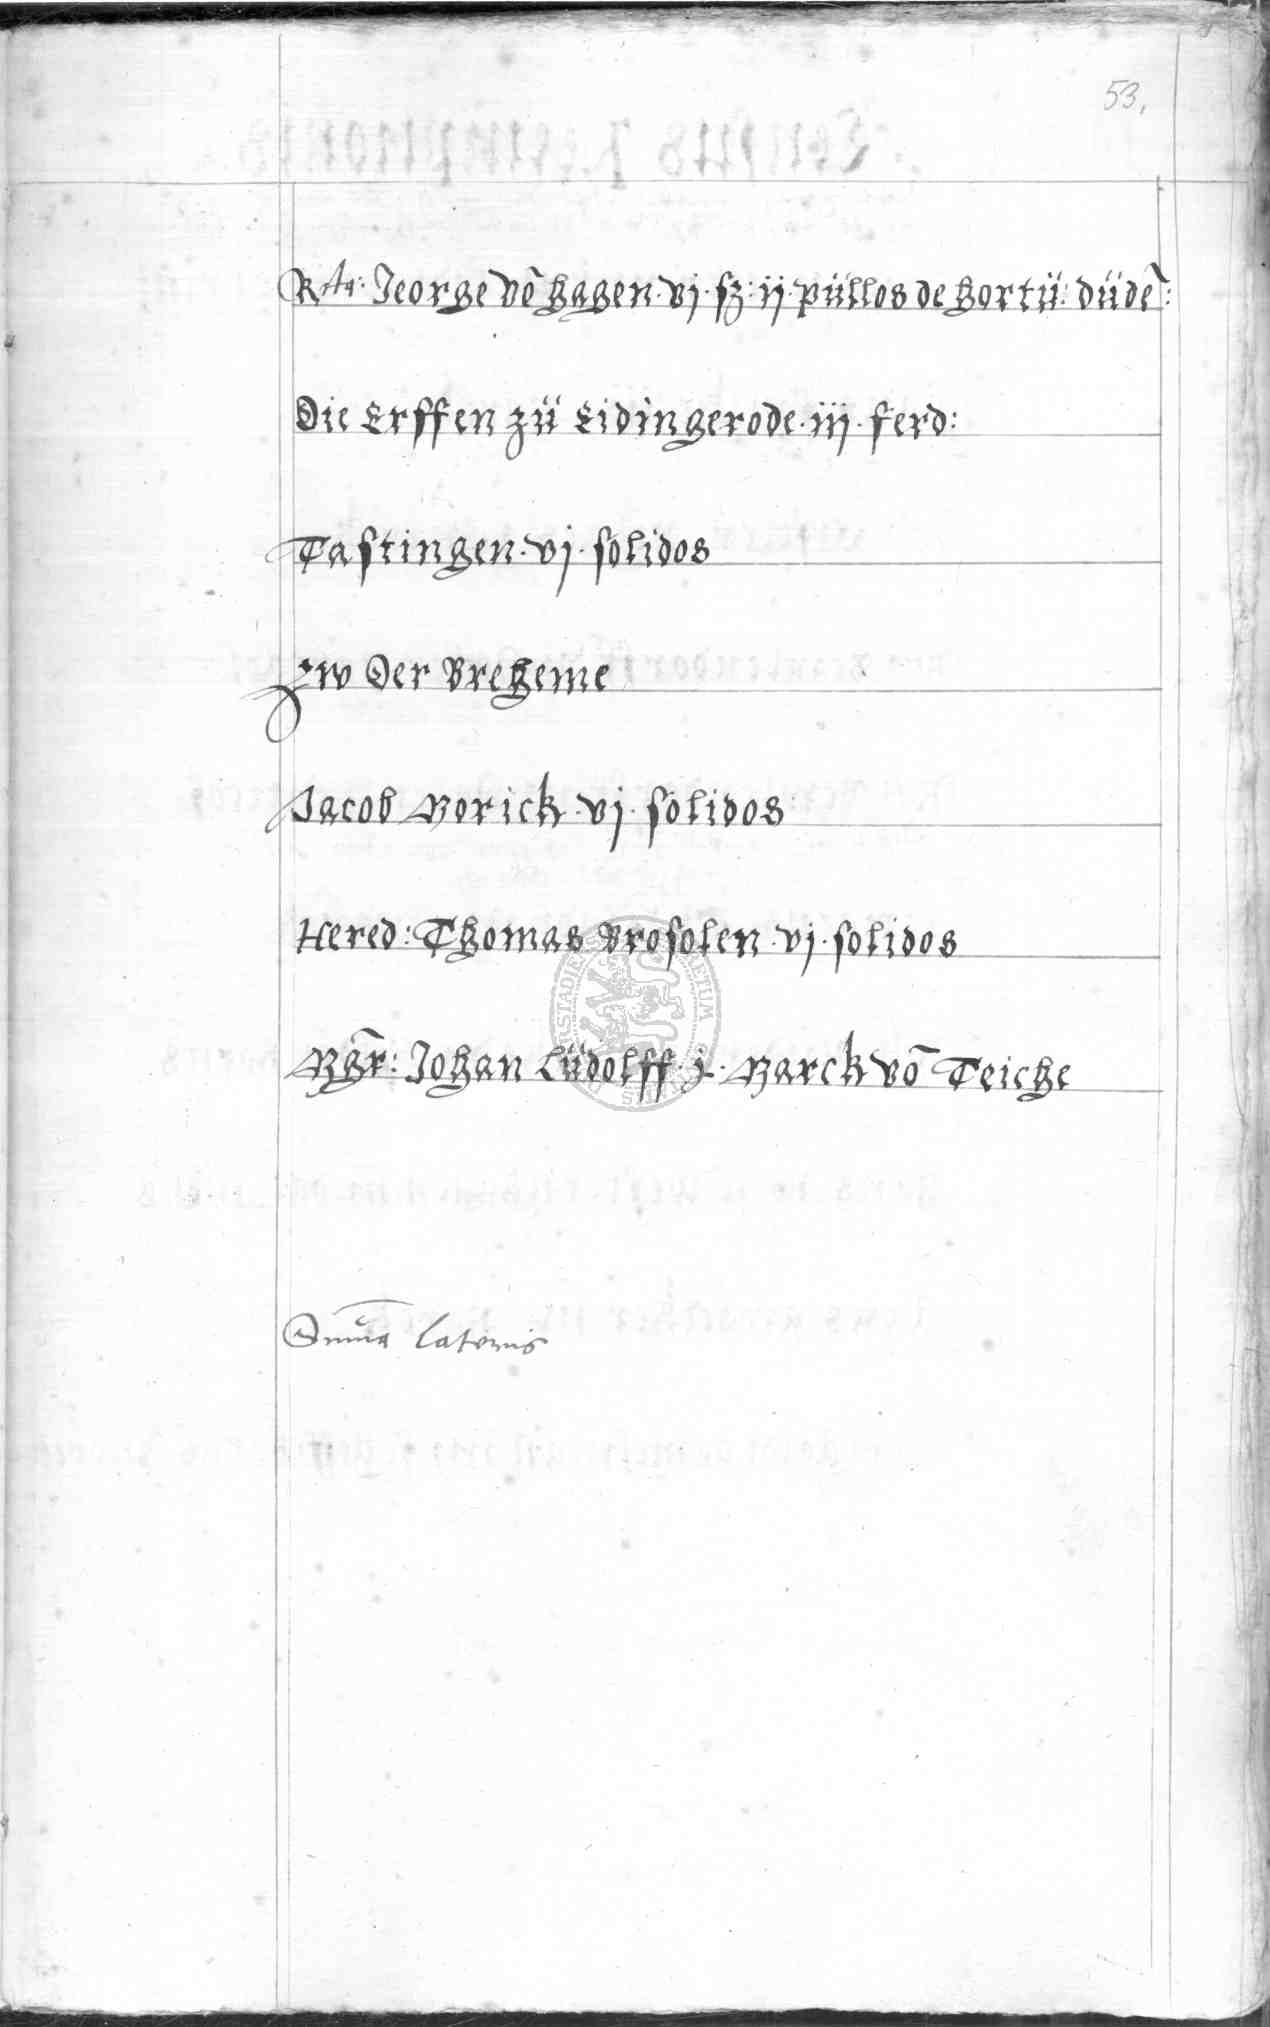 53.
Rta: Jeorge võ hagen · vj · sz: ij · püllos de hortü: düdẽ:
Die Erffen zü Eidingerode · iij · ferd:
Tastingen · vj · solidos
Zw Der Breheme
Jacob Morick · vj · solidos
Hered: Thomas Brosolen · vj · solidos
Mgr̃: Johan Lüdolff · j · Marck võ Teiche
Sum̃a lateris